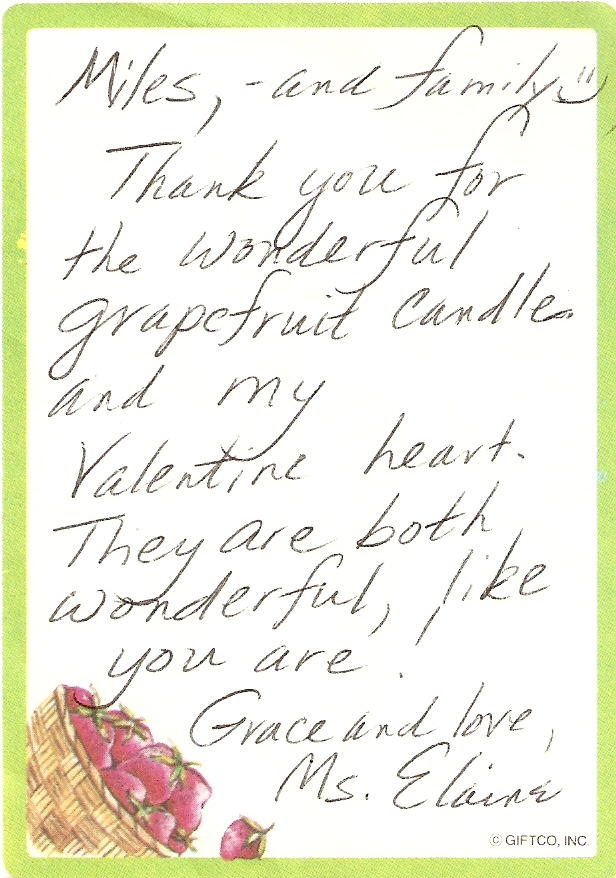 Miles, - and family
Thank you for
the wonderful
grapefruit candle
and my
Valentine heart.
They are both
wonderful, like
you are.
Grace and love,
Ms. Elaine
© GIFTCO, INC.